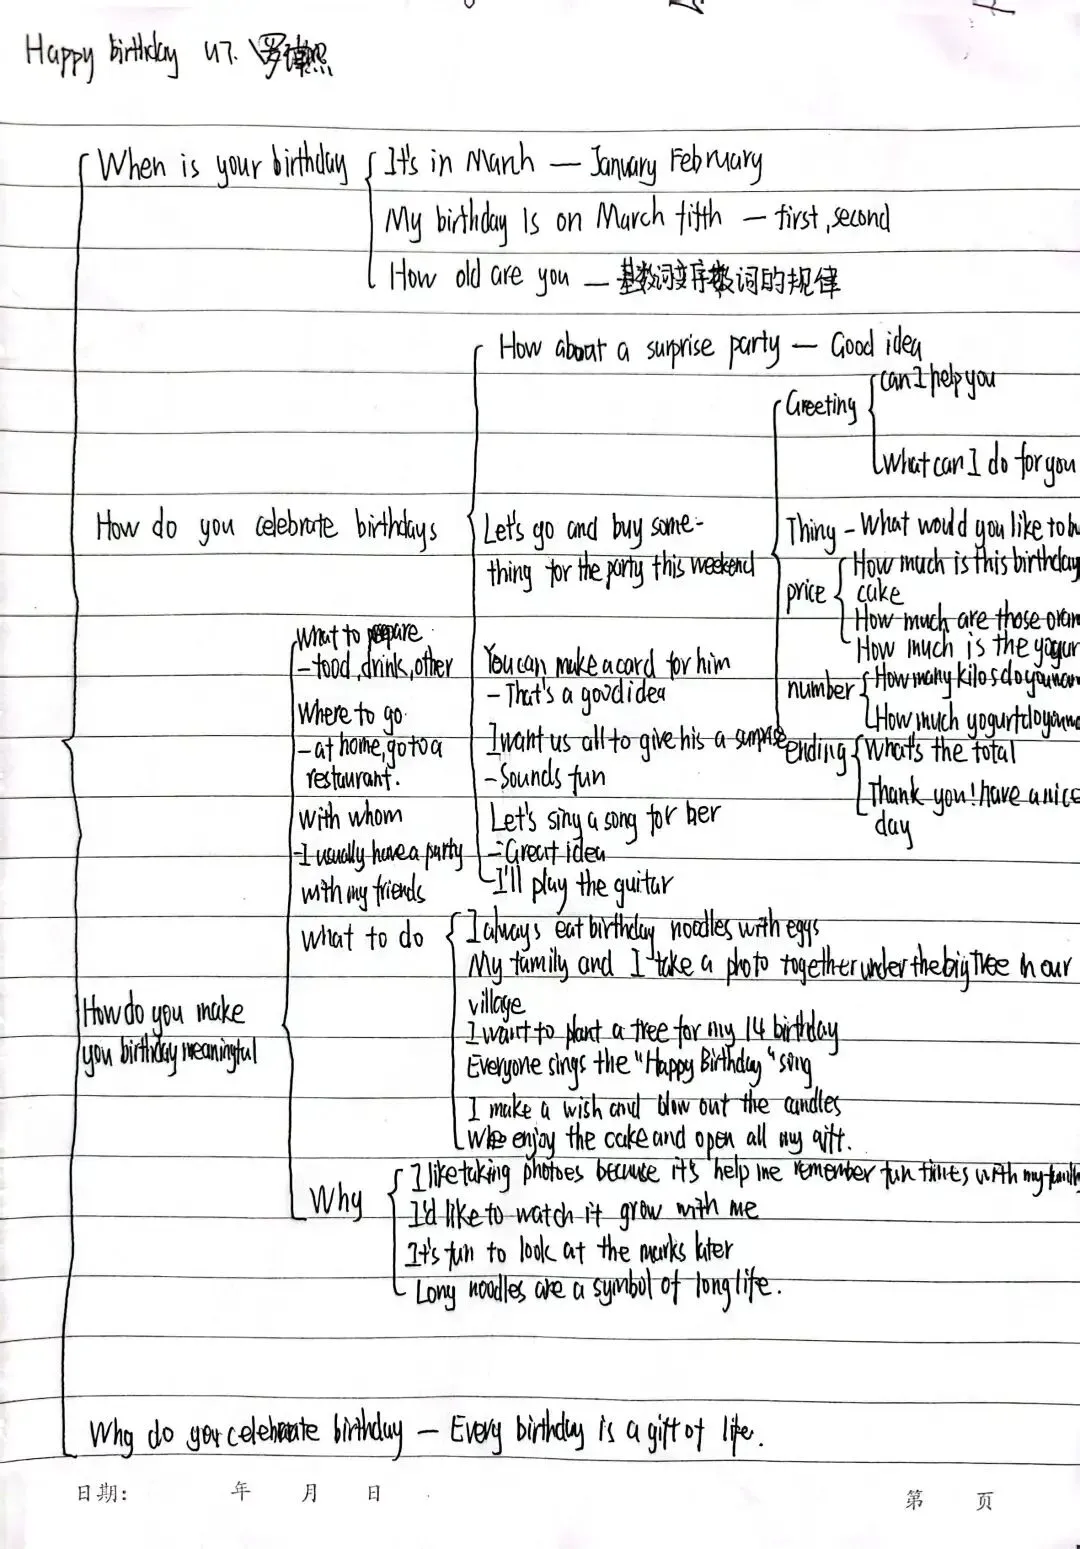 Happy birthday U7.
When is your birthday
It's in March — January February
My birthday Is on March fifth — first, second
How old are you — 基数词变序数词的规律
How do you celebrate birthdays
How about a surprise party — Good idea
Let's go and buy some-
thing for the party this weekend
Greeting
can I help you
What can I do for you
Thing - What would you like to
price
How much is this birthday
cake
How much are those
How much is the
number
How many kilos do you
How much yogurt do you
ending
What's the total
Thank you! have a nice
day
You can make a card for him
- That's a good idea
I want us all to give his a surprise
- Sounds fun
Let's sing a song for her
- Great idea
- I'll play the guitar
How do you make
you birthday meaningful
What to prepare
- food, drink, other
Where to go
- at home, go to a
restaurant.
with whom
- I usually have a party
with my friends
What to do
I always eat birthday noodles with eggs
My family and I take a photo together under the big tree in our
village
I want to plant a tree for my 14 birthday
Everyone sings the "Happy Birthday" song
I make a wish and blow out the candles
We enjoy the cake and open all my gift.
Why
I like taking photoes because it's help me remember fun times with my family
I'd like to watch it grow with me
It's fun to look at the marks later
Long noodles are a symbol of long life.
Why do you celebrate birthday — Every birthday is a gift of life.
日期: 年 月 日
第 页